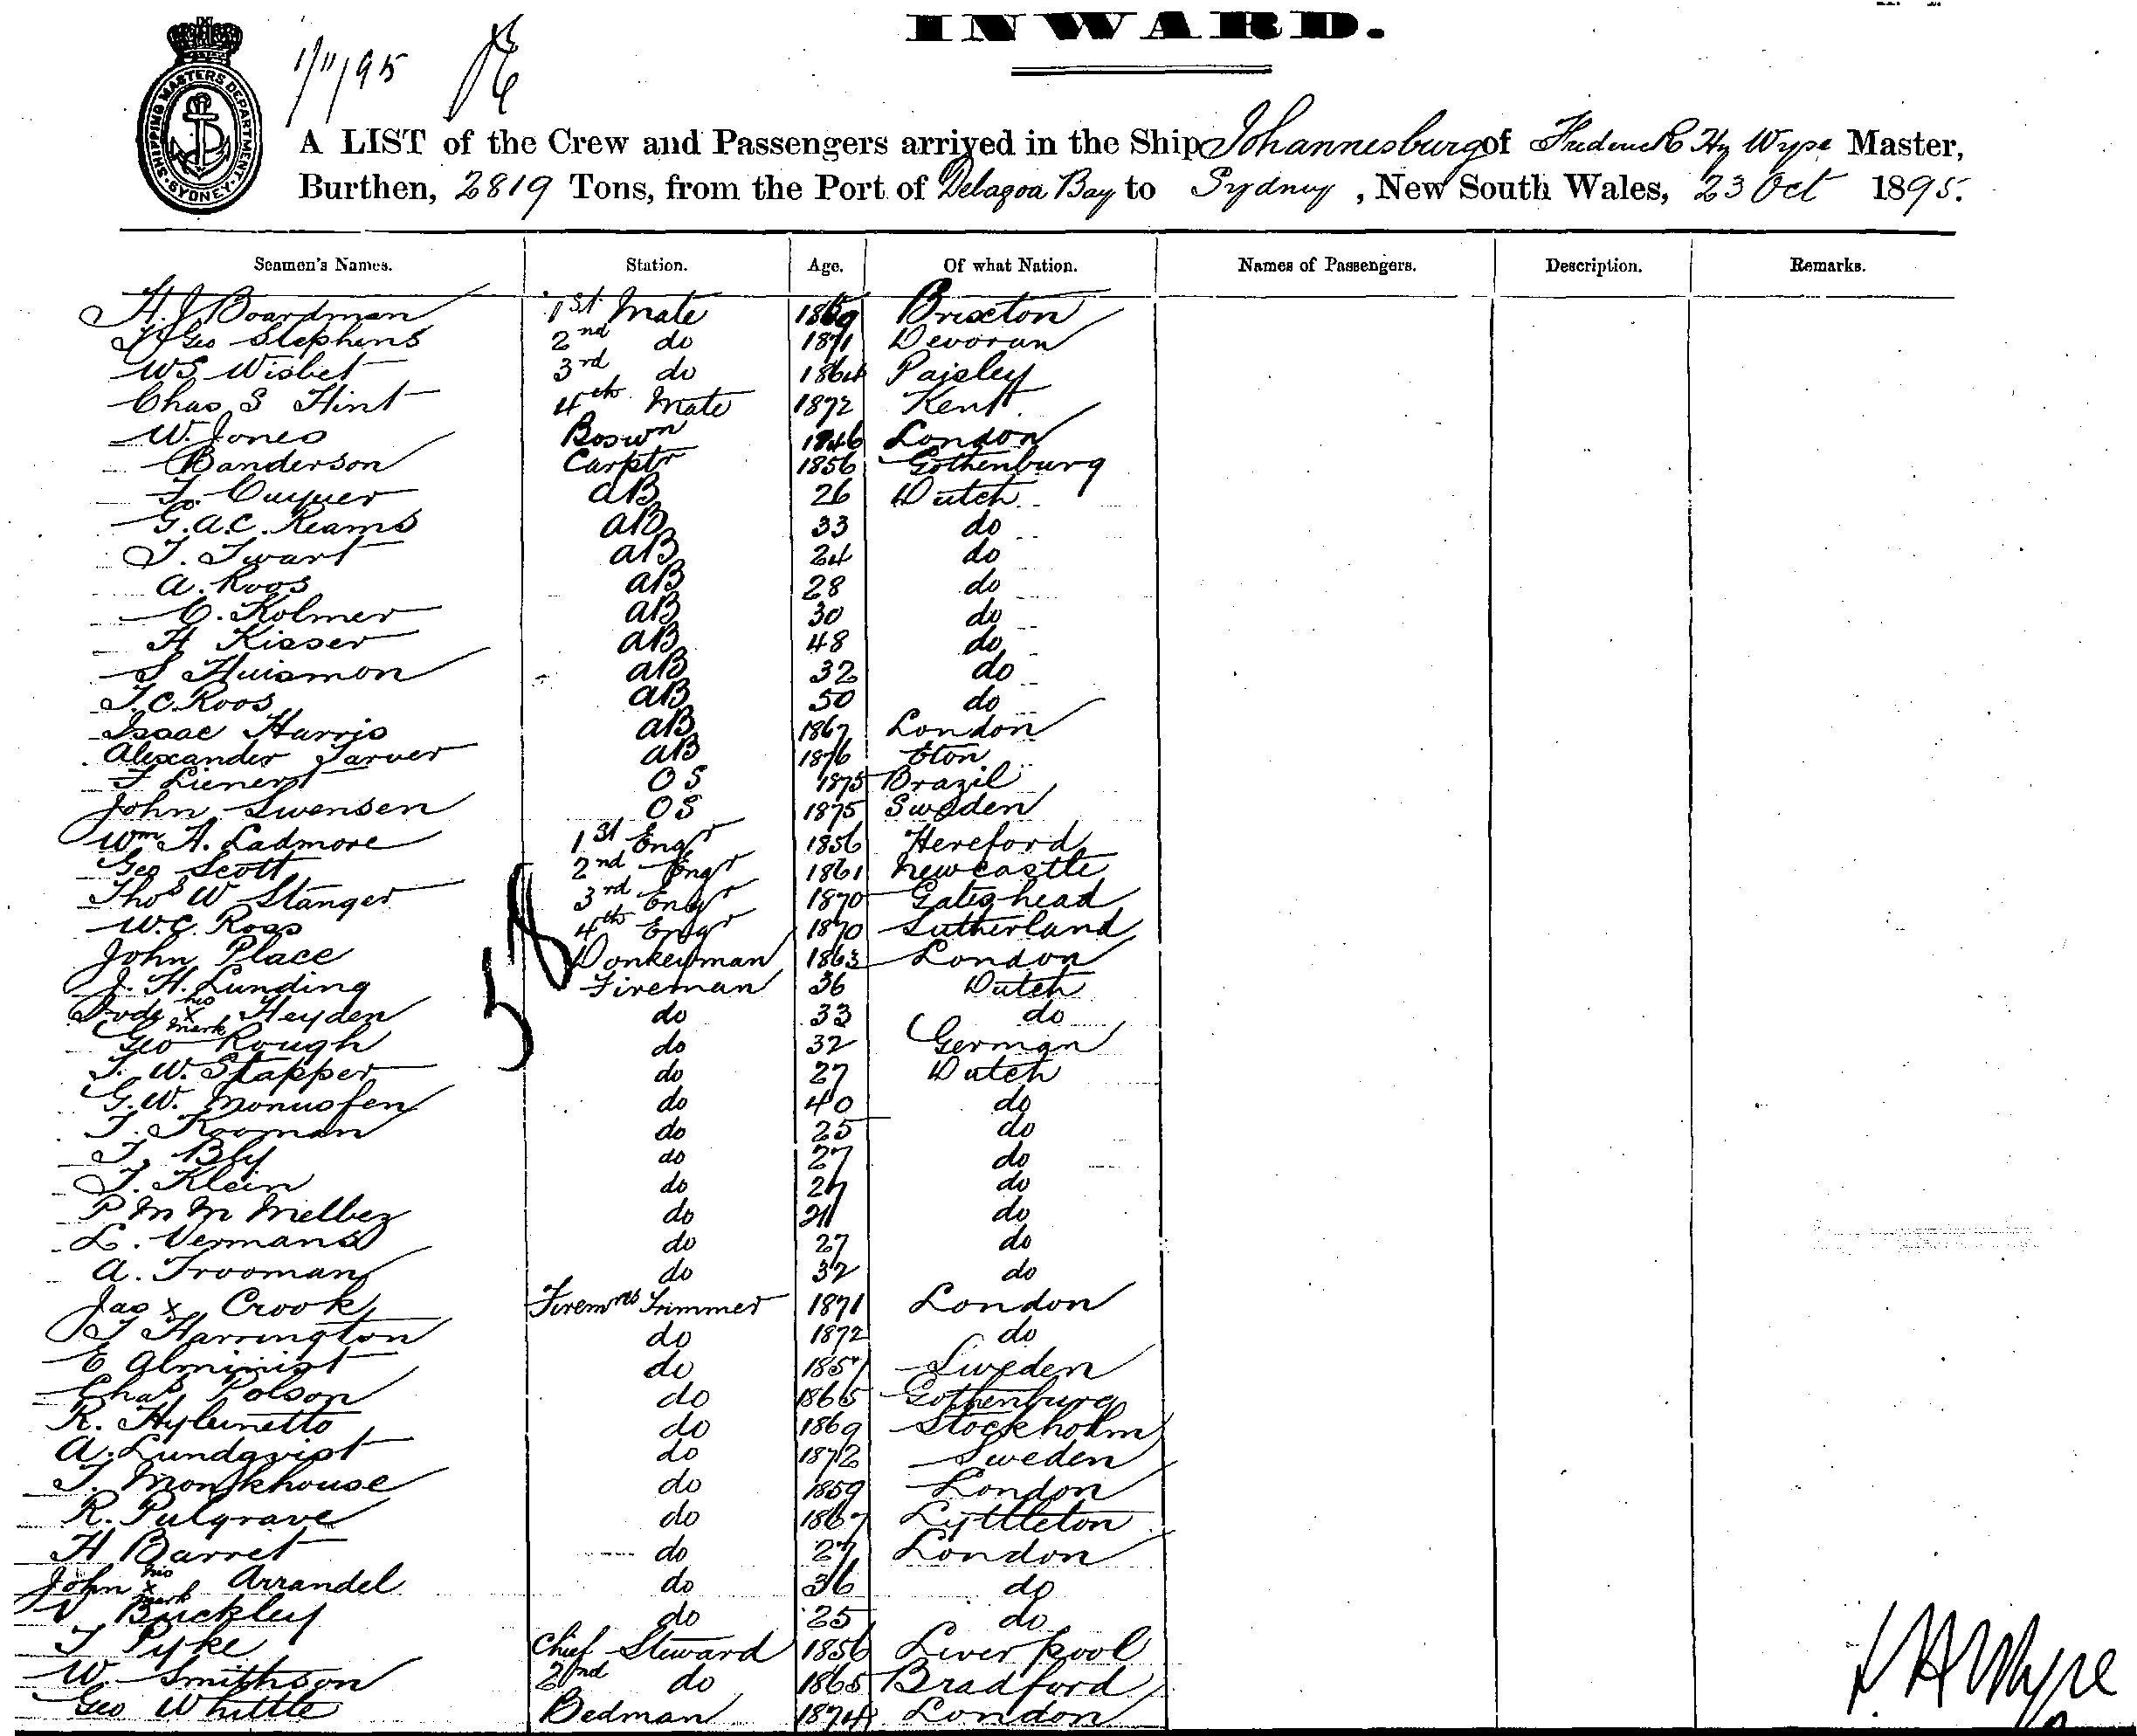 INWARD.
1/11/95
SHIPPING MASTERS DEPARTMENT SYDNEY
A LIST of the Crew and Passengers arrived in the Ship Johannesburg of Frederick Hy Wype Master,
Burthen, 2819 Tons, from the Port of Delagoa Bay to Sydney, New South Wales, 23 Oct 1895.
Seamen's Names. Station. Age. Of what Nation. Names of Passengers. Description. Remarks.
H. J. Boardman 1st Mate 1869 Brixton
Geo Stephens 2nd do 1871 Devoran
W S Nisbet 3rd do 1864 Paisley
Chas S Flint 4th Mate 1872 Kent
W. Jones Boswn 1846 London
Banderson Carptr 1856 Gothenburg
aB 26 Dutch
G. A. C. Reams aB 33 do
T. Twart aB 24 do
A. Roos aB 28 do
C. Kolmer aB 30 do
H Kisser aB 48 do
S Huismon aB 32 do
T. C. Roos aB 50 do
Isaac Harris aB 1867 London
Alexander Tarver aB 1876 Eton
F Lienerst OS 1875 Brazil
John Swensen OS 1875 Sweden
Wm A. Ladmore 1st Engr 1856 Hereford
Geo Scott 2nd Engr 1861 Newcastle
Thos W Stanger 3rd Engr 1870 Gateshead
W. C. Ross 4th Engr 1870 Sutherland
John Place Donkeyman 1863 London
J. H. Lunding Fireman 36 Dutch
his x mark Heyden do 33 do
Geo Rough do 32 German
T. W. Stapper do 27 Dutch
G. W. Monusfen do 40 do
T. Kooman do 25 do
T. Bly do 27 do
T. Klein do 27 do
P M M Melbez do 21 do
L. Vermans do 27 do
A. Trooman do 32 do
Jas x Crook Firemns Trimmer 1871 London
T Harrington do 1872 do
E Alminist do 1857 Sweden
Chas Polson do 1865 Gothenburg
R. do 1869 Stockholm
A. Lundqvist do 1872 Sweden
T. Monkhouse do 1859 London
R. Pulgrave do 1867 Lyttleton
H Barret do 27 London
John his x mark Arrandel do 36 do
Buckley do 25 do
T Pyke Chief Steward 1856 Liverpool
W. Smithson 2nd do 1865 Bradford
Geo Whittle Bedman 1874 London
57
F H Wype